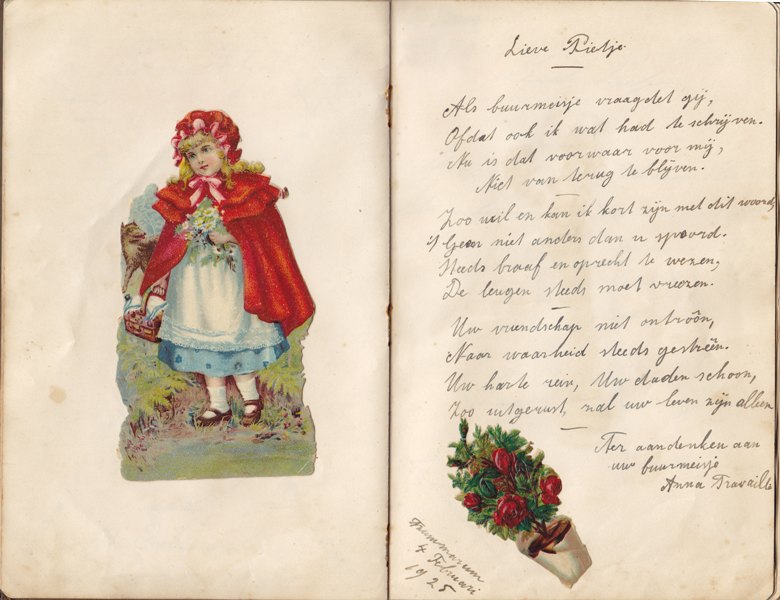 Lieve Pietje
Als buurmeisje vraagdet gij,
Ofdat ook ik wat had te schrijven.
Nu is dat voorwaar voor mij,
Niet van terug te blijven.
Zoo wil en kan ik kort zijn met dit woord,
Geen niet anders dan u spoord.
Steeds braaf en oprecht te wezen,
De leugen steeds moet vreezen.
Uw vriendschap niet ontroôn,
Naar waarheid steeds gestreên.
Uw harte rein, Uw daden schoon,
Zoo uitgerust, zal uw leven zijn alleen
Ter aandenken aan
uw buurmeisje
Anna Travaille
Trummarum
4 Februari
1925